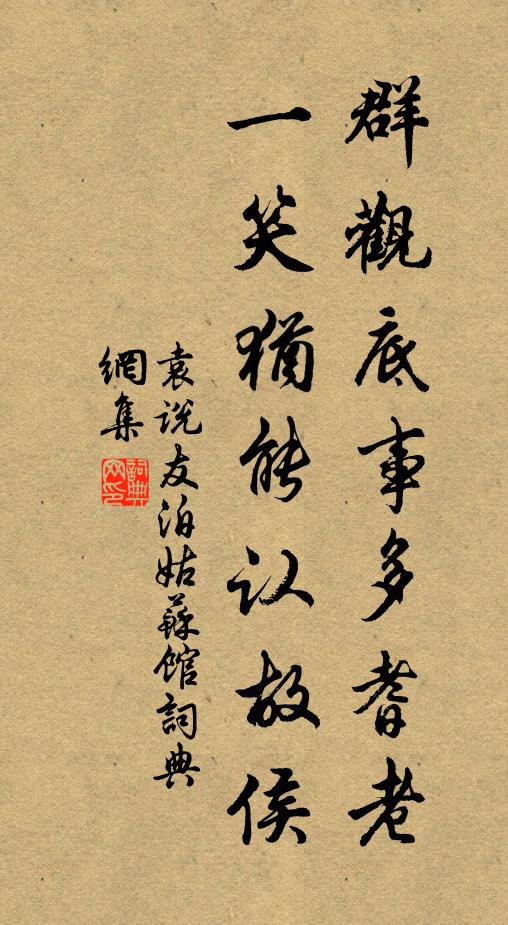 群觀底事多耆老
一笑猶能认故侯
袁说友泊姑蘇馆詞典
網集
詞典网印